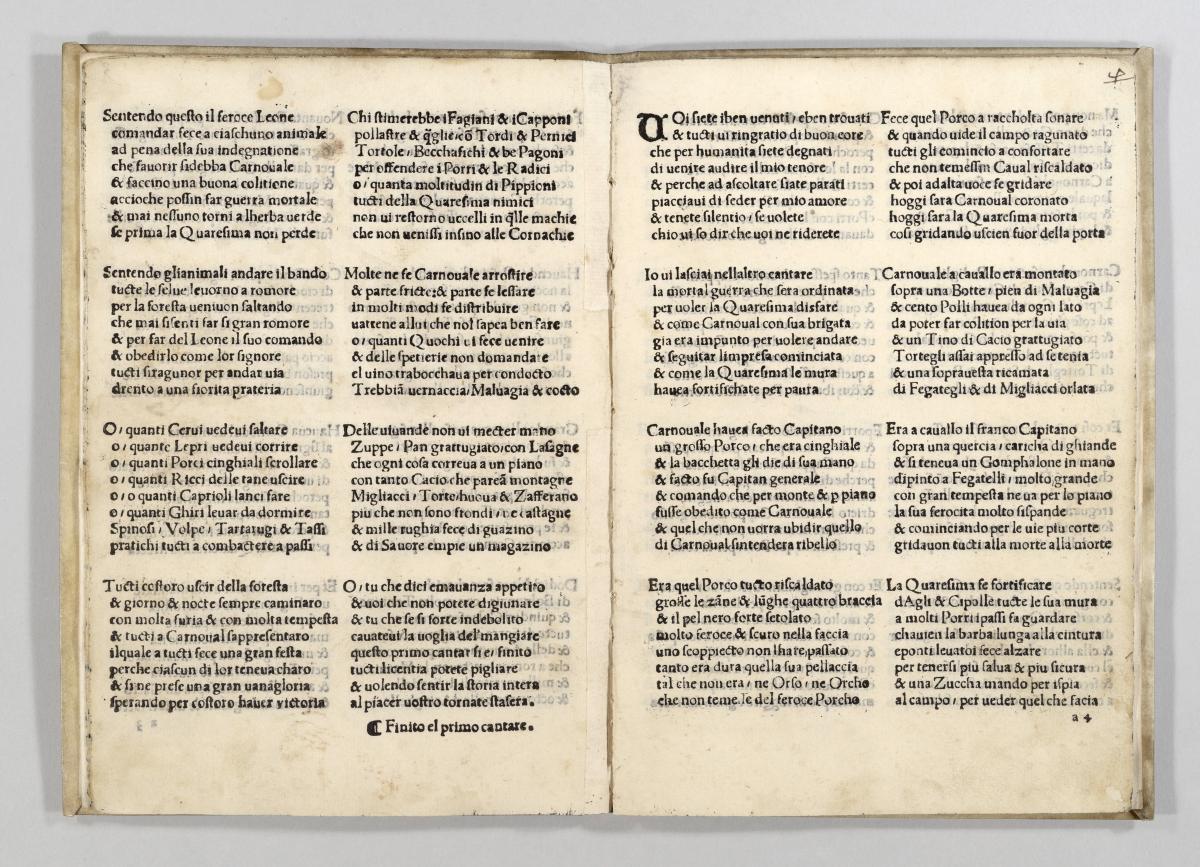 Sentendo questo il feroce Leone
comandar fece a ciaschuno animale
ad pena della sua indegnatione
che fauorir sidebba Carnouale
& faccino una buona colitione
accioche possin far guerra mortale
& mai nessuno torni a lherba uerde
se prima la Quaresima non perde
Sentendo glianimali andare il bando
tucte le selue leuorno a romore
per la foresta ueniuon saltando
che mai sisenti far si gran romore
& per far del Leone il suo comando
& obedirlo come lor signore
tucti siragunor per andar uia
drento a una fiorita prateria
O/quanti Cerui uedeui saltare
o/quante Lepri uedeui corrire
o/quanti Porci cinghiali scrollare
o/quanti Ricci delle tane uscire
o/o quanti Caprioli lanci fare
o/quanti Ghiri leuar da dormire
Spinosi/Volpe/Tartarugi & Tassi
pratichi tucti a combactere a passi
Tucti costoro uscir della foresta
& giorno & nocte sempre caminaro
con molta furia & con molta tempesta
& tucti a Carnoual sappresentaro
ilquale a tucti fece una gran festa
perche ciascun di lor teneua charo
& si ne prese una gran uanagloria
sperando per costoro hauer victoria
Chi stimerebbe i Fagiani & i Capponi
pollastre & q̃glie/cõ Tordi & Pernici
Tortole/Becchafichi & be Pagoni
per offendere i Porri & le Radici
o/quanta moltitudin di Pippioni
tucti della Quaresima nimici
non ui restorno uccelli in q̃lle machie
che non uenissi insino alle Cornachie
Molte ne fe Carnouale arrostire
& parte fricte/& parte fe lessare
in molti modi fe distribuire
uattene allui che nol sapea ben fare
o/quanti Quochi ui fece uenire
& delle spetierie non domandare
el uino trabocchaua per condocto
Trebbiã uernaccia/Maluagia & cocto
Delle uiuande non ui mecter mano
Zuppe/Pan grattugiato/con Lasagne
che ogni cosa correua a un piano
con tanto Cacio che pareã montagne
Migliacci/Torte/huoua & Zafferano
piu che non sono frondi/ne castagne
& mille rughia fece di guazino
& di Sauore empie un magazino
O/tu che dici emauanza appetito
& uoi che non potete digiunare
& tu che se si forte indebolito
cauateui la uoglia del mangiare
questo primo cantar si e/finito
tucti licentia potete pigliare
& uolendo sentir la storia intera
al piacer uostro tornate stasera.
¶ Finito el primo cantare.
4
VOi siete iben uenuti/eben trouati
& tucti ui ringratio di buon core
che per humanita siete degnati
di uenire audire il mio tenore
& perche ad ascoltare siate parati
piacciaui di seder per mio amore
& tenete silentio/se uolete
chio ui so dir che uoi ne riderete
Io ui lasciai nellaltro cantare
la mortal guerra che sera ordinata
per uoler la Quaresima disfare
& come Carnoual con sua brigata
gia era impunto per uolere andare
& seguitar limpresa cominciata
& come la Quaresima le mura
hauea fortifichate per paura
Carnouale hauea facto Capitano
un grosso Porco/che era cinghiale
& la bacchetta gli die di sua mano
& facto su Capitan generale
& comando che per monte & p piano
fusse obedito come Carnouale
& quel che non uorra ubidir quello
di Carnoual sintendera ribello
Era quel Porco tucto riscaldato
grosse le zãne & lũghe quattro braccia
& il pel nero forte setolato
molto feroce & scuro nella faccia
uno scoppiecto non lhare passato
tanto era dura quella sua pellaccia
tal che non era/ne Orso/ne Orcho
che non teme le del feroce Porcho
Fece quel Porco a raccholta sonare
& quando uide il campo ragunato
tucti gli comincio a confortare
che non temessin Caual riscaldato
& poi adalta uoce fe gridare
hoggi sara Carnoual coronato
hoggi sara la Quaresima morta
cosi gridando uscien fuor della porta
Carnouale a cauallo era montato
sopra una Botte/pien di Maluagia
& cento Polli hauea da ogni lato
da poter far colition per la uia
& un Tino di Cacio grattugiato
Tortegli assai appresso ad se tenia
& una soprauesta ricamata
di Fegategli & di Migliacci orlata
Era a cauallo il franco Capitano
sopra una quercia/caricha di ghiande
& si teneua un Gomphalone in mano
dipinto a Fegatelli/molto grande
con gran tempesta ne ua per lo piano
la sua ferocita molto sispande
& cominciando per le uie piu corte
gridauon tucti alla morte alla morte
La Quaresima fe fortificare
dAgli & Cipolle tucte le sua mura
a molti Porri ipassi fa guardare
chauien la barba lunga alla cintura
eponti leuatoi fece alzare
per tenersi piu salua & piu sicura
& una Zuccha mando per ispia
al campo/per ueder quel che facia
a 4